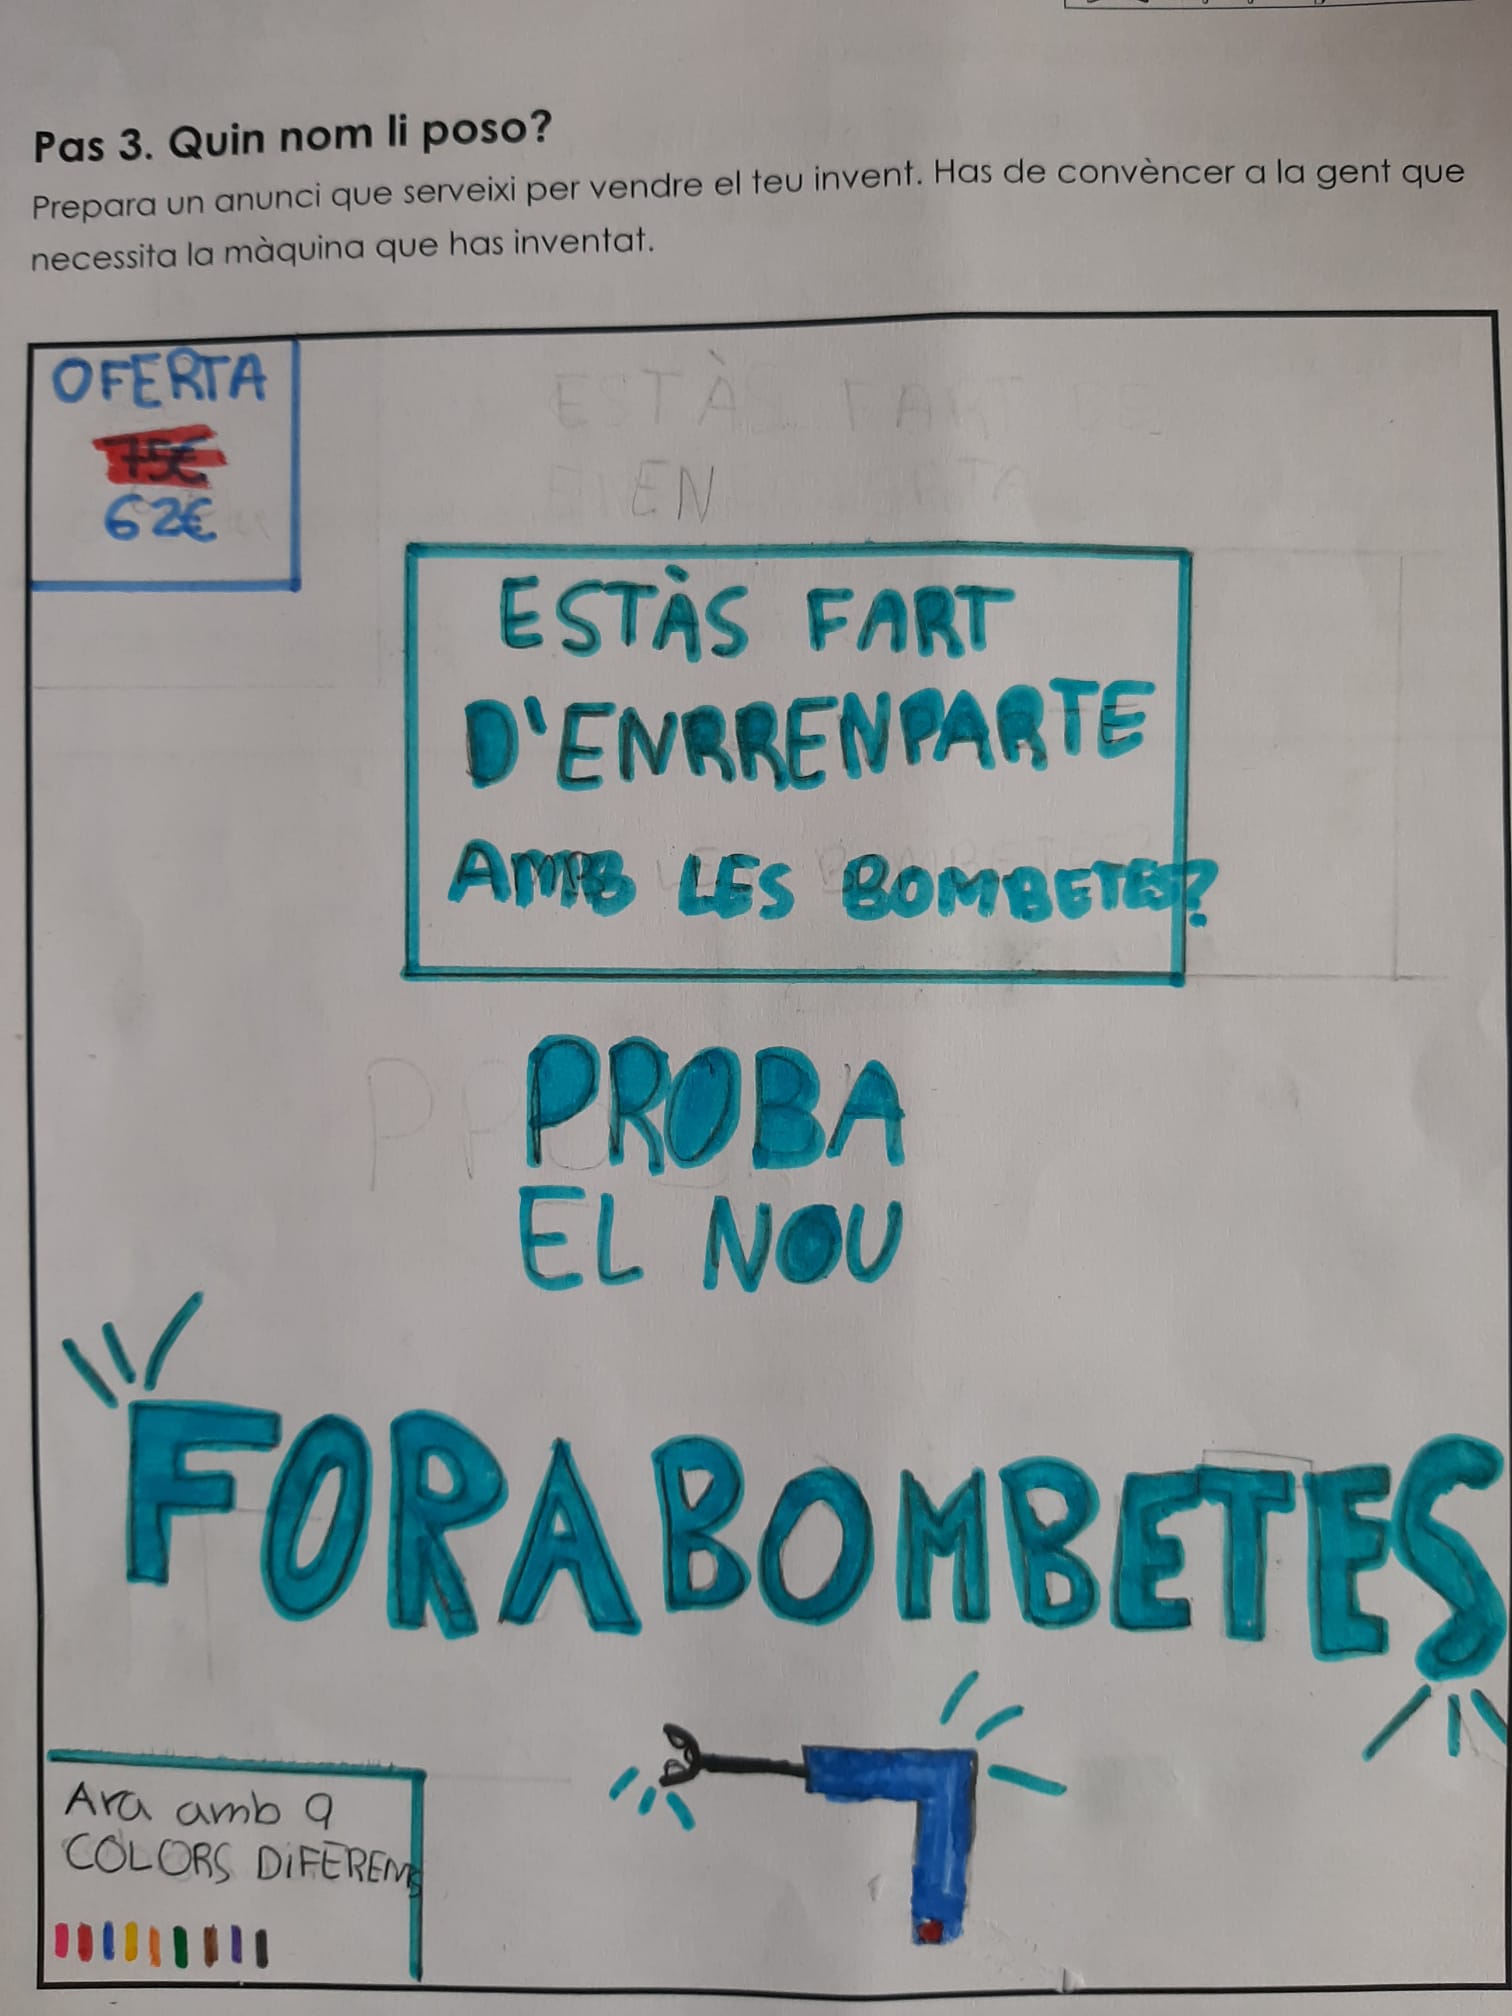 Pas 3. Quin nom li poso?
Prepara un anunci que serveixi per vendre el teu invent. Has de convèncer a la gent que
necessita la màquina que has inventat.
OFERTA
75€
62€
ESTÀS FART DE
EN
ESTÀS FART
D'ENRRENPARTE
AMB LES BOMBETES?
PROBA
EL NOU
FORABOMBETES
Ara amb 9
COLORS DIFERENTS